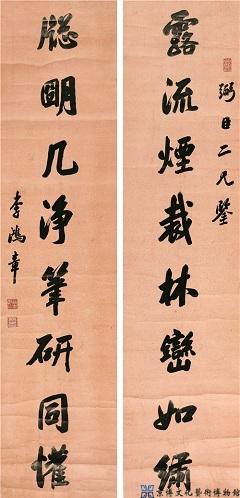 弼臣二兄鉴
露流煙裁林巒如繡
牕明几净筆研同懽
李鴻章
京傳文化藝術博物館